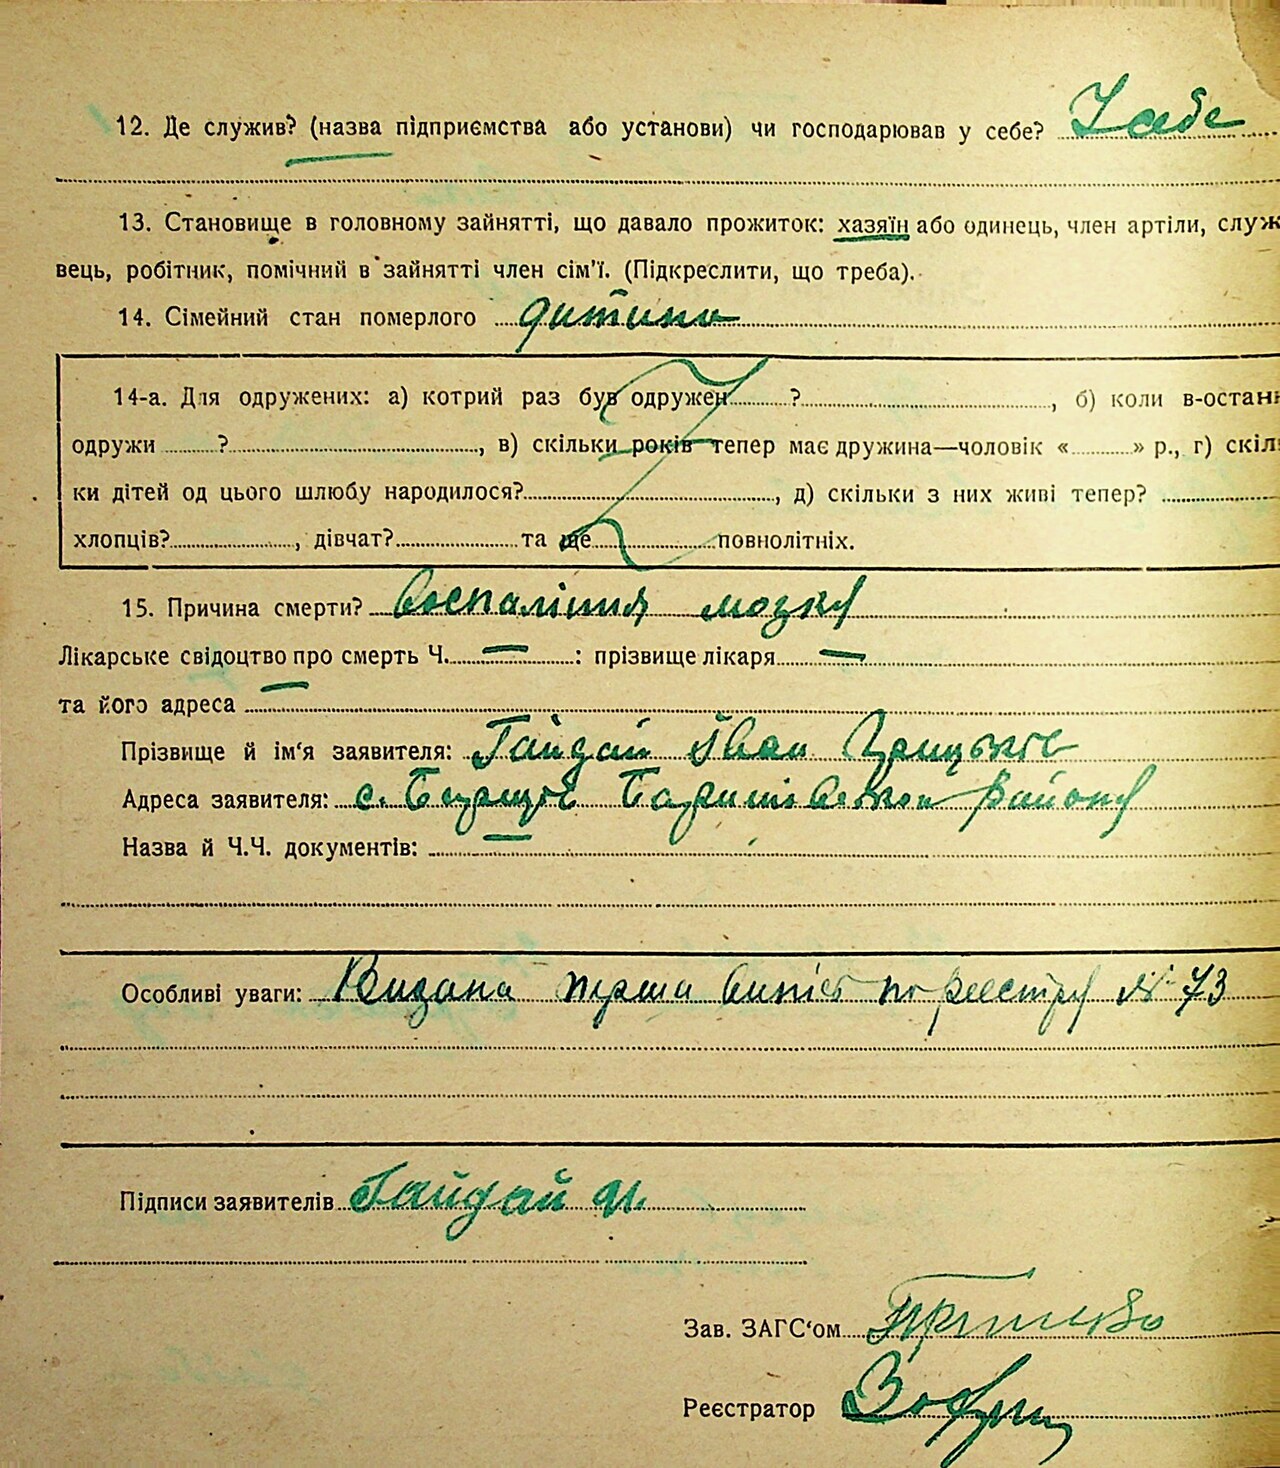 12. Де служив? (назва підприємства або установи) чи господарював у себе? У себе
13. Становище в головному зайнятті, що давало прожиток: хазяїн або одинець, член артілі, служ
вець, робітник, помічний в зайнятті член сім'ї. (Підкреслити, що треба).
14. Сімейний стан померлого дитина
14-а. Для одружених: а) котрий раз був одружен ? , б) коли в-останн
одружи ? , в) скільки років тепер має дружина—чоловік « » р., г) скіль
ки дітей од цього шлюбу народилося? , д) скільки з них живі тепер?
хлопців? , дівчат? та ще повнолітніх.
15. Причина смерти? Воспаління мозку
Лікарське свідоцтво про смерть Ч. — : прізвище лікаря —
та його адреса —
Прізвище й ім'я заявителя: Гайдай Іван
Адреса заявителя: с. Району
Назва й Ч.Ч. документів: —
Особливі уваги: Видана перша випись по реєстру № 73
Підписи заявителів Гайдай И.
Зав. ЗАГС'ом
Реєстратор